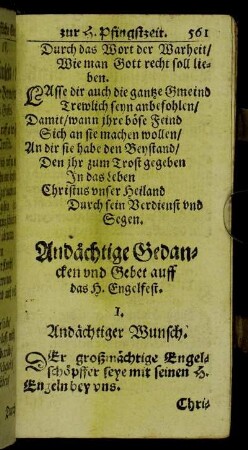 zur H. Pfingstzeit. 561
Durch das Wort der Warheit/
Wie man Gott recht soll lie-
ben.
LAsse dir auch die gantze Gmeind
Trewlich seyn anbefohlen/
Damit/wann jhre böse Feind
Sich an sie machen wollen/
An dir sie habe den Beystand/
Den jhr zum Trost gegeben
In das Leben
Christus vnser Heiland
Durch sein Verdienst vnd
Segen.
Andächtige Gedan-
cken vnd Gebet auff
das H. Engelfest.
I.
Andächtiger Wunsch.
DEr großmächtige Engel-
schöpffer seye mit seinen H.
Engeln bey vns.
Chri-